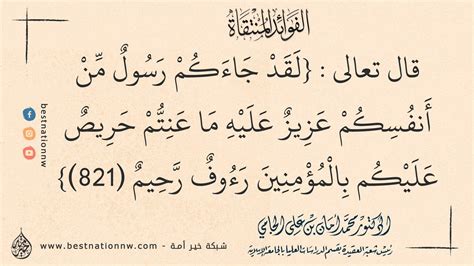 الفَوَائِدُ المُنْتَقَاةُ
قال تعالى : {لَقَدْ جَاءَكُمْ رَسُولٌ مِّنْ
أَنفُسِكُمْ عَزِيزٌ عَلَيْهِ مَا عَنِتُّمْ حَرِيصٌ
عَلَيْكُم بِالْمُؤْمِنِينَ رَءُوفٌ رَّحِيمٌ (821)}
bestnationnw
الدكتور محمد أمان بن علي الجامي
رئيس شعبة العقيدة بقسم الدراسات العليا بالجامعة الإسلامية
شبكة خير أمة - www.bestnationnw.com